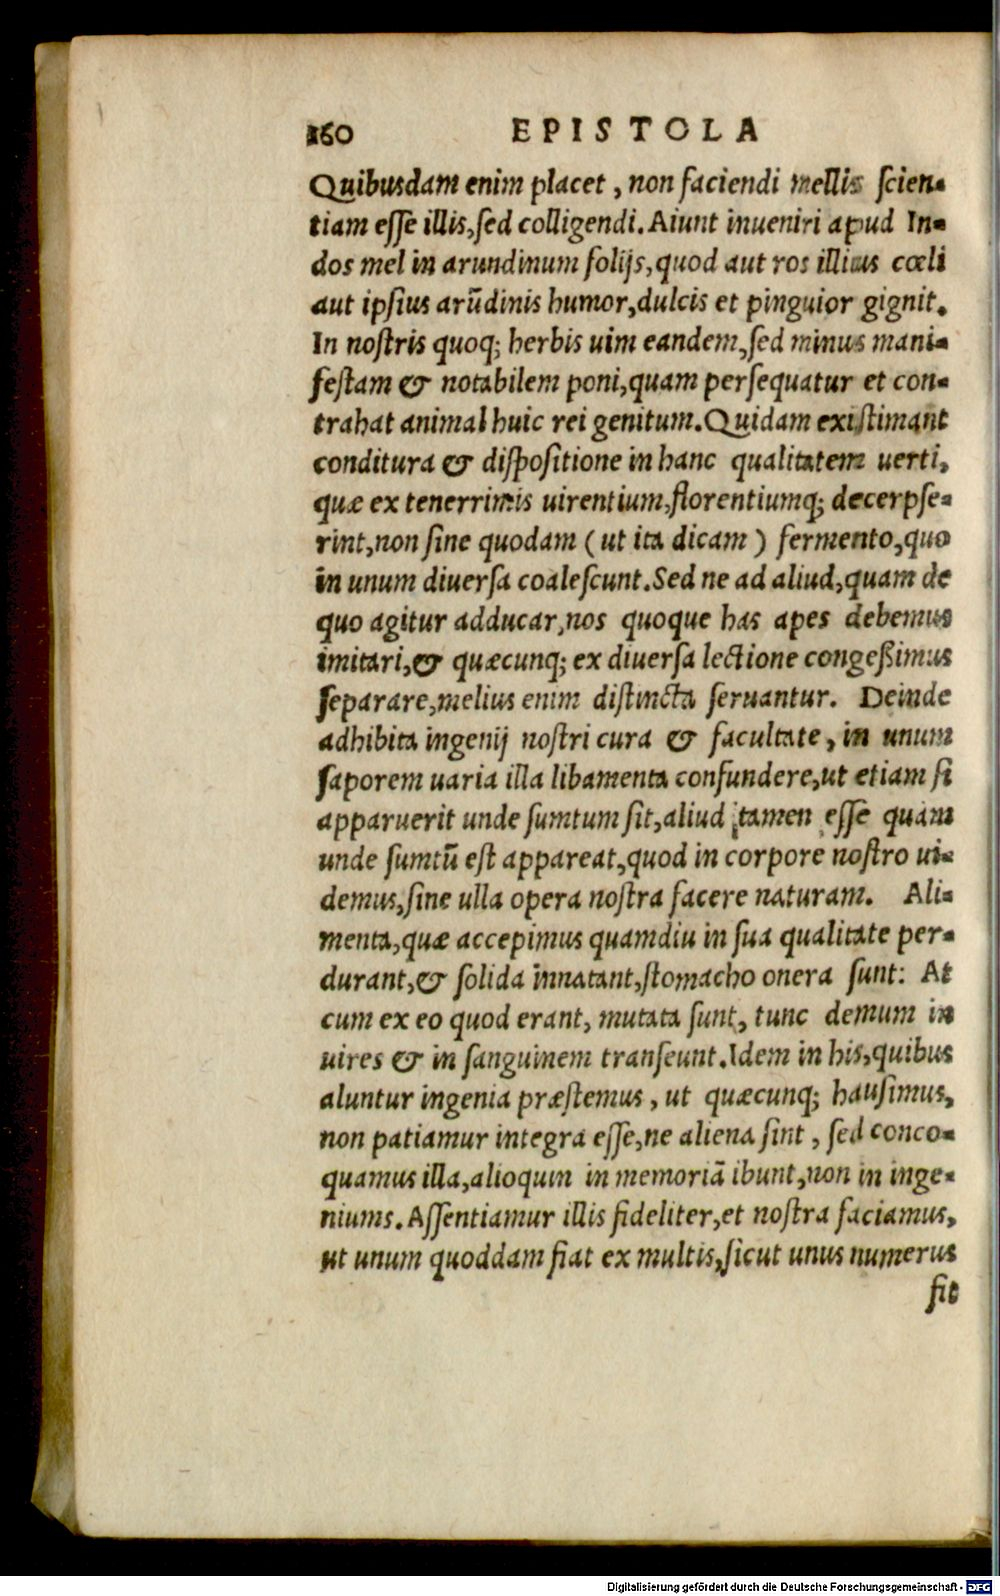 160 EPISTOLA
Quibusdam enim placet, non faciendi mellis scien-
tiam esse illis, sed colligendi. Aiunt inueniri apud In-
dos mel in arundinum folijs, quod aut ros illius cœli
aut ipsius arũdinis humor, dulcis et pinguior gignit.
In nostris quoq; herbis uim eandem, sed minus mani-
festam & notabilem poni, quam persequatur et con-
trahat animal huic rei genitum. Quidam existimant
conditura & dispositione in hanc qualitatem uerti,
quæ ex tenerrimis uirentium, florentiumq; decerpse-
rint, non sine quodam (ut ita dicam) fermento, quo
in unum diuersa coalescunt. Sed ne ad aliud, quam de
quo agitur adducar, nos quoque has apes debemus
imitari, & quæcunq; ex diuersa lectione congeßimus
separare, melius enim distincta seruantur. Deinde
adhibita ingenij nostri cura & facultate, in unum
saporem uaria illa libamenta confundere, ut etiam si
apparuerit unde sumtum sit, aliud tamen esse quam
unde sumtũ est appareat, quod in corpore nostro ui-
demus, sine ulla opera nostra facere naturam. Ali-
menta, quæ accepimus quamdiu in sua qualitate per-
durant, & solida innatant, stomacho onera sunt: At
cum ex eo quod erant, mutata sunt, tunc demum in
uires & in sanguinem transeunt. Idem in his, quibus
aluntur ingenia præstemus, ut quæcunq; hausimus,
non patiamur integra esse, ne aliena sint, sed conco-
quamus illa, alioquin in memoriã ibunt, non in inge-
niums. Assentiamur illis fideliter, et nostra faciamus,
ut unum quoddam fiat ex multis, sicut unus numerus
fit
Digitalisierung gefördert durch die Deutsche Forschungsgemeinschaft - DFG